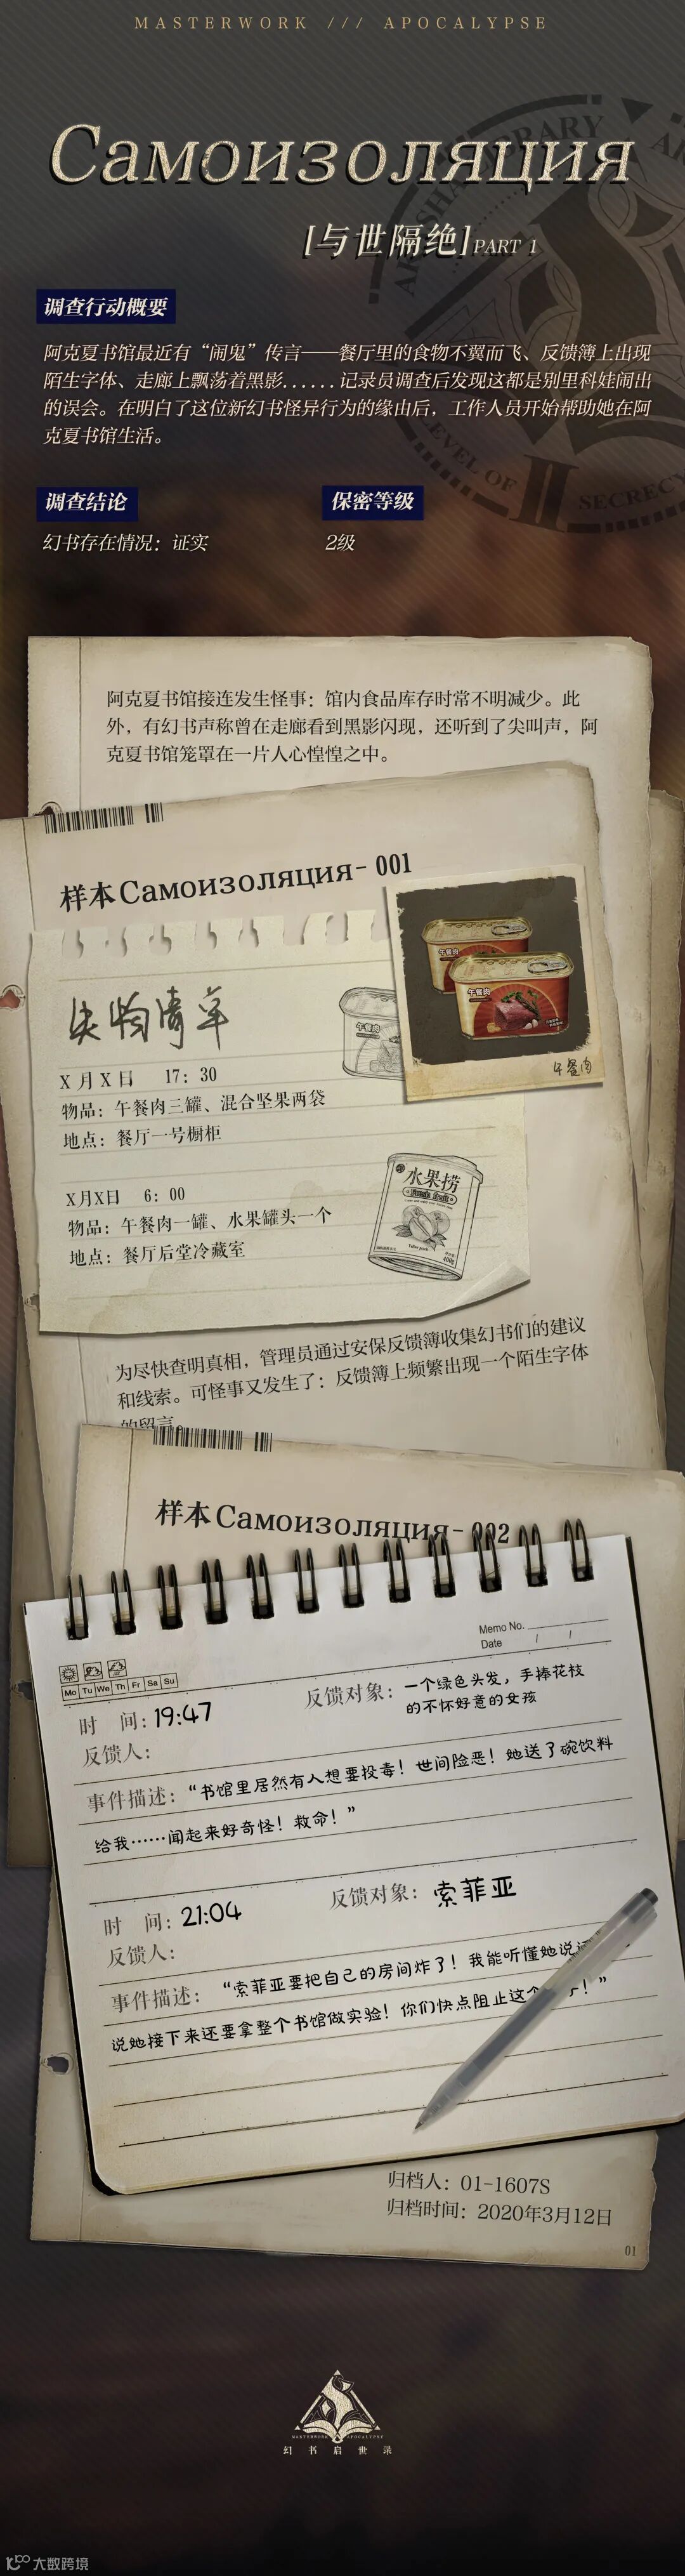 MASTERWORK /// APOCALYPSE
Самоизоляция
[与世隔绝]PART 1
调查行动概要
阿克夏书馆最近有“闹鬼”传言——餐厅里的食物不翼而飞、反馈簿上出现
陌生字体、走廊上飘荡着黑影......记录员调查后发现这都是别里科娃闹出
的误会。在明白了这位新幻书怪异行为的缘由后，工作人员开始帮助她在阿
克夏书馆生活。
LEVEL OF II SECRECY
调查结论
保密等级
幻书存在情况：证实
2级
阿克夏书馆接连发生怪事：馆内食品库存时常不明减少。此
外，有幻书声称曾在走廊看到黑影闪现，还听到了尖叫声，阿
克夏书馆笼罩在一片人心惶惶之中。
样本Самоизоляция- 001
午餐肉
午餐肉
失物清单
午餐肉
午餐肉
X 月 X 日 17：30
物品：午餐肉三罐、混合坚果两袋
地点：餐厅一号橱柜
水果捞
Fresh fruit
400g
X月X日 6：00
物品：午餐肉一罐、水果罐头一个
地点：餐厅后堂冷藏室
为尽快查明真相，管理员通过安保反馈簿收集幻书们的建议
和线索。可怪事又发生了：反馈簿上频繁出现一个陌生字体
的留言。
样本Самоизоляция- 002
Memo No.
Date / /
Mo Tu We Th Fr Sa Su
时 间：19:47
反馈对象：一个绿色头发，手捧花枝
的不怀好意的女孩
反馈人：
事件描述：“书馆里居然有人想要投毒！世间险恶！她送了碗饮料
给我……闻起来好奇怪！救命！”
时 间：21:04
反馈对象：索菲亚
反馈人：
事件描述：“索菲亚要把自己的房间炸了！我能听懂她说
说她接下来还要拿整个书馆做实验！你们快点阻止这个 ！”
归档人：01-1607S
归档时间：2020年3月12日
01
MASTERWORK APOCALYPSE
幻书启世录
大数跨境